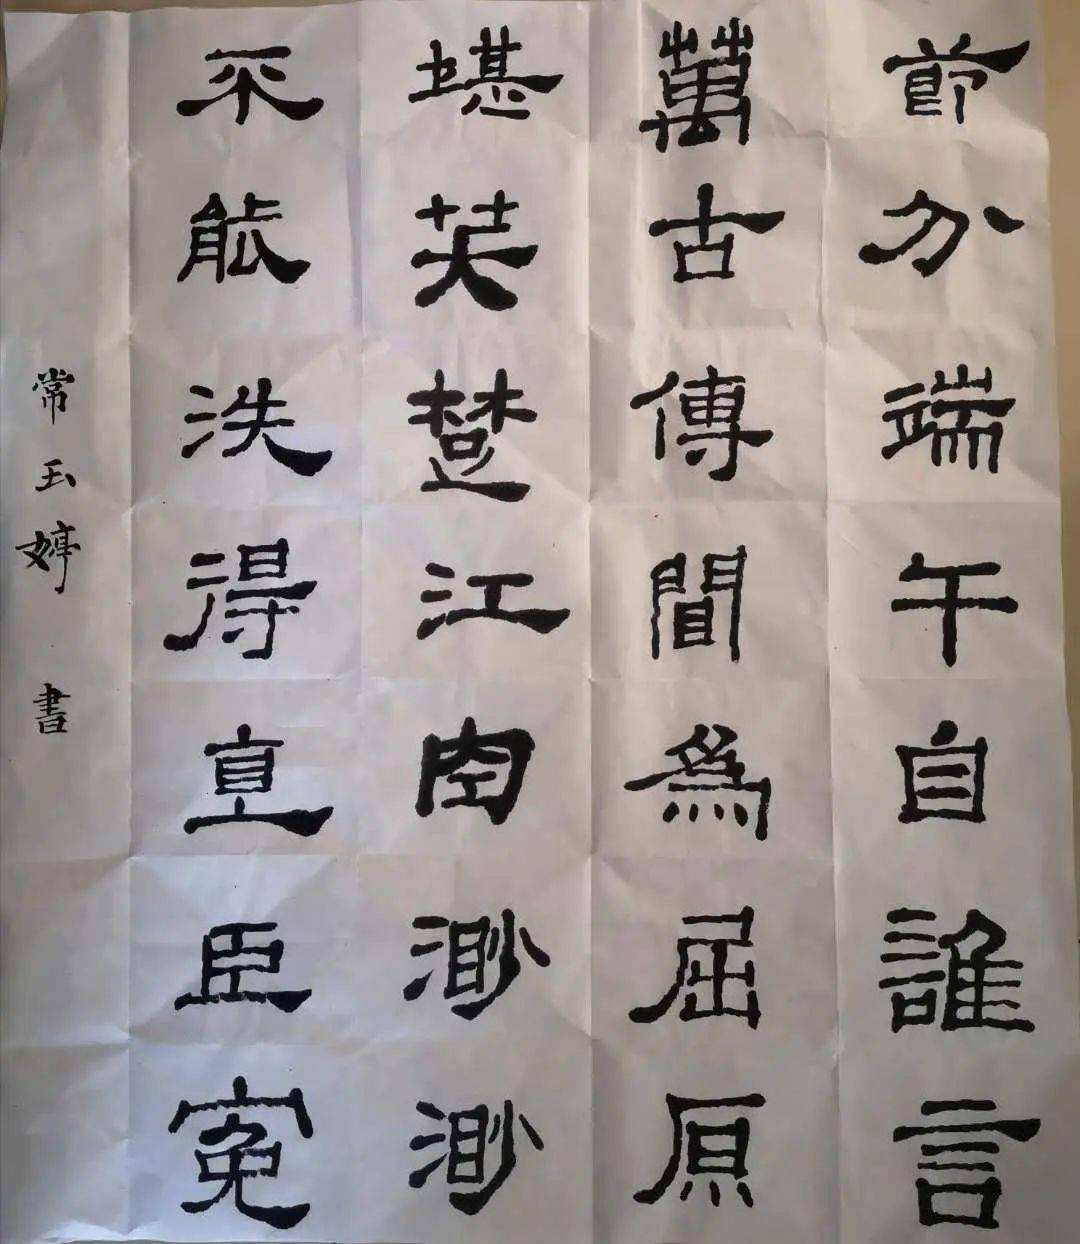 節分端午自誰言
萬古傳間為屈原
堪笑楚江空渺渺
不能洗得直臣冤
常玉婷 書